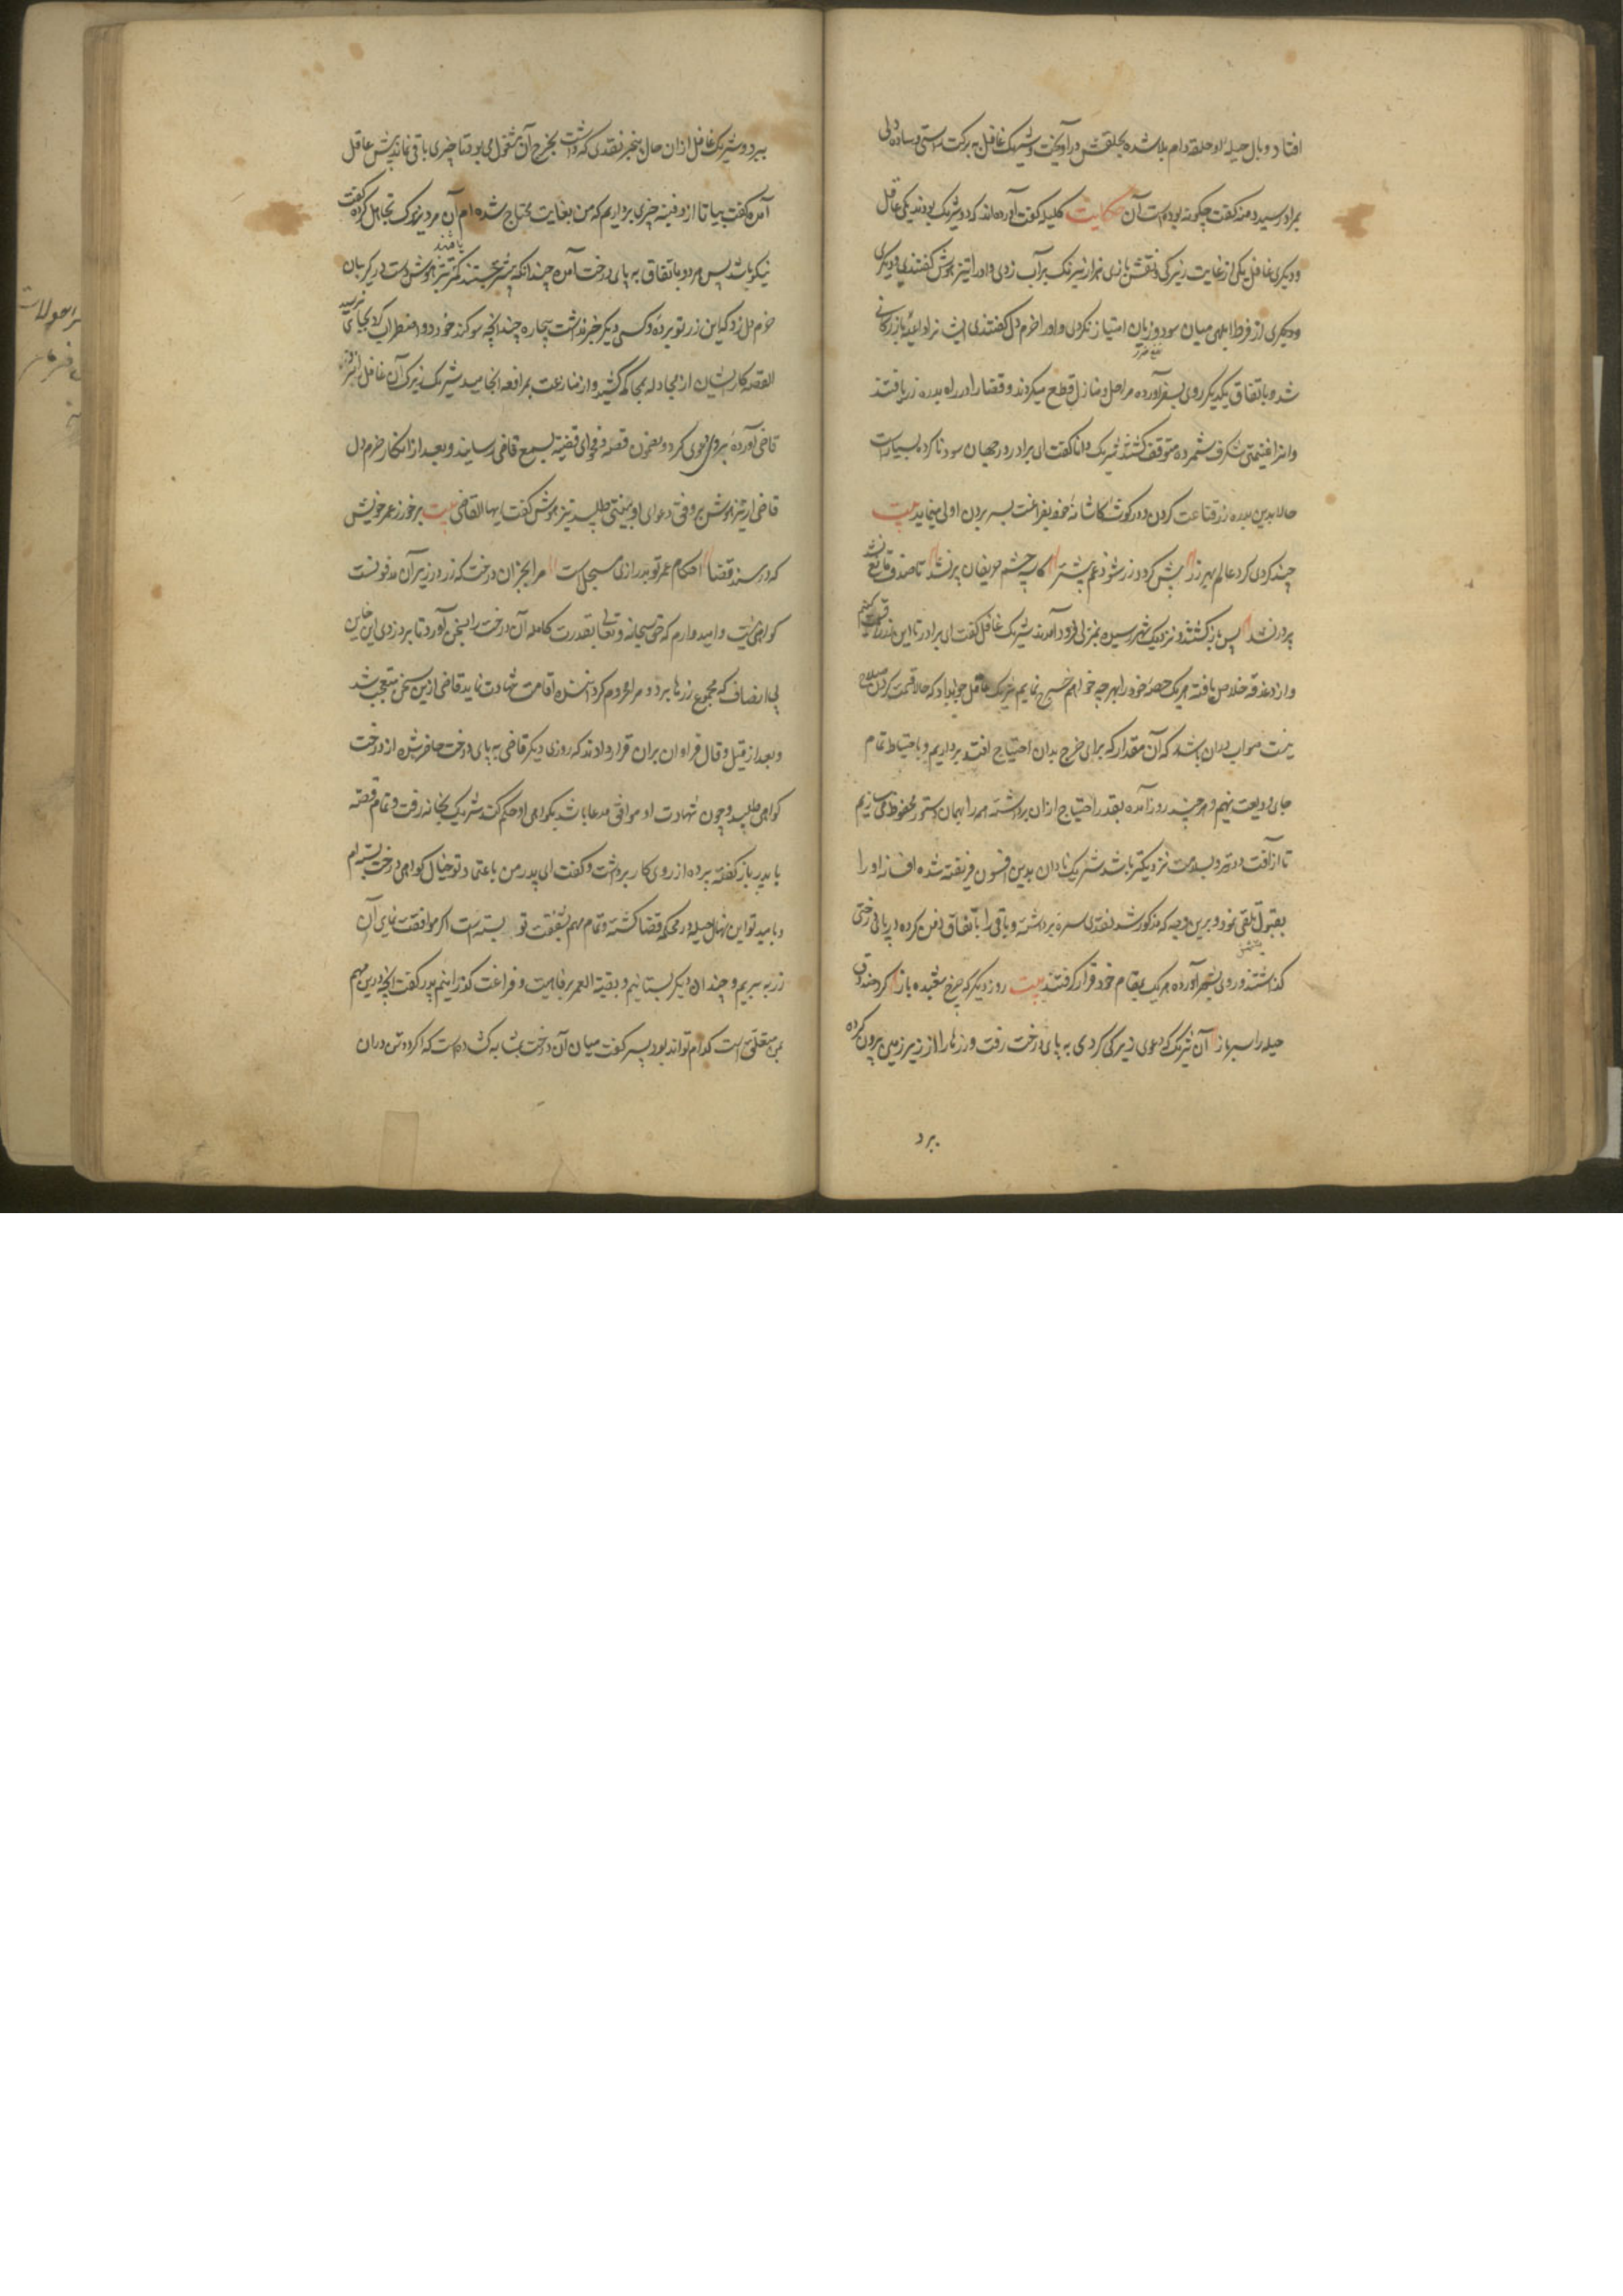 افتاد و بال حیله او حلقه دام بلا شده بحلقش درآویخت و شریک غافل به برکت راستی و ساده دلی
بمراد رسید دمنه گفت چگونه بوده است آن حکایت کلیله گفت آورده‌اند که دو شریک بودند یکی عاقل
و دیگری غافل یکی از غایت زیرکی و نقش بازی هزار نیرنگ بر آب زدی و او را تیزهوش گفتندی و دیگری
و دیگری از فرط ابلهی میان سود و زیان امتیاز نکردی و او را خرم دل گفتندی ایشانرا داعیه بازرگانی
نفع ضرر
شد و باتفاق یکدیگر روی بسفر آورده مراحل و منازل قطع میکردند و قضا را در راه بدره زر یافتند
و انرا غنیمتی شگرف شمرده متوقف گشتند شریک دانا گفت ای برادر در جهان سود ناکرده بسیارست
حالا بدین بدره زر قناعت کردن و در گوشه کاشانه خود بفراغت بسر بردن اولی مینماید بیت
چند کردی گرد عالم بهر زر بیش گردد زر شود غم بیشتر کاسه چشم حریصان پر نشد تا صدف قانع نشد
پر در نشد پس بازگشتند و نزدیک شهر رسیده بمنزلی فرود آمدند شریک غافل گفت ای برادر بیا تا این زر را قسمت کنیم
و از دغدغه خلاص یافته هر یک حصه خود را بهرچه خواهیم خرج نمایم شریک عاقل جواب داد که حالا قسمت کردن صلاح
نیست صواب دران باشد که آن مقدار که برای خرج بدان احتیاج افتد برداریم و باحتیاط تمام
جای ودیعت نهیم و هر چند روز آمده بقدر احتیاج ازان برداشته همه را بهمان دستور محفوظ میسازیم
تا از آفت دورتر و بسلامت نزدیکتر باشد شریک نادان بدین افسون فریفته شده افسانه او را
بقبول تلقی نمود و برین وجه که مذکور شد نقدی سره برداشته و باقی را باتفاق دفن کرده در پای درختی
گذاشتند و روی بشهر آورده هر یک بمقام خود قرار گرفتند بیت روز دیگر که چرخ مشعبده باز کرد صندوق
حیله را سر باز آن شریک که دعوی زیرکی کردی به پای درخت رفت و زرها را از زیر زمین بیرون کرده
ببرد
ببرد و شریک غافل ازان حال بیخبر نقدی که داشت بخرج آن مشغول می‌بود تا چیزی باقی نماند پیش عاقل
آمده گفت بیا تا از دفینه چیزی برداریم که من بغایت محتاج شده‌ام آن مرد زیرک تجاهل کرده گفت
نیکو باشد پس هر دو باتفاق به پای درخت آمده چندانکه بیشتر جستند کمتر یافتند تیزهوش دست در گریبان
خرم دل زد که این زر تو برده و کسی دیگر خبر نداشت بیچاره چندانچه سوگند خورد و اضطراب کرد بجای نرسید
القصه کار ایشان از مجادله بمحاکمه کشید و از منازعت بمرافعه انجامید شریک زیرک آن غافل را نزد
قاضی آورده بروی دعوی کرد و مضمون قصه و فحوای قضیه بسمع قاضی رسانید و بعد از انکار خرم دل
قاضی از تیزهوش بر وفق دعوای او بینتی طلبید تیزهوش گفت ایها القاضی بیت برخور ز عمر خویش
که در مسند قضا احکام عمر تو بدرازی مسجل است مرا بجز آن درخت که زر در زیر آن مدفونست
گواهی نیست و امیدوارم که حق سبحانه و تعالی بقدرت کامله آن درخت را بسخن آورد تا بر دزدی این خاین
بی انصاف که مجموع زرها برد و مرا محروم گردانیده اقامت شهادت نماید قاضی ازین سخن متعجب شد
و بعد از قیل و قال فراوان بران قرار دادند که روزی دیگر قاضی به پای درخت حاضر شده از درخت
گواهی طلبد و چون شهادت او موافق مدعا باشد بگواهی او حکم کند شریک بخانه رفت و تمام قصه
با پدر بازگفته پرده از روی کار برداشت و گفت ای پدر من باعتماد تو خیال گواهی درخت بسته‌ام
و بامید تو این نهال حیله در محکمه قضا کشته و تمام مهم بشفقت تو بسته است اگر موافقت نمای آن
زر به بریم و چندان دیگر بستانیم و بقیة العمر برفاهیت و فراغت گذرانیم پدر گفت آنچه درین مهم
بمن متعلق است کدام تواند بود پسر گفت میان آن درخت بمثابه گشاده است که اگر دو تن دران